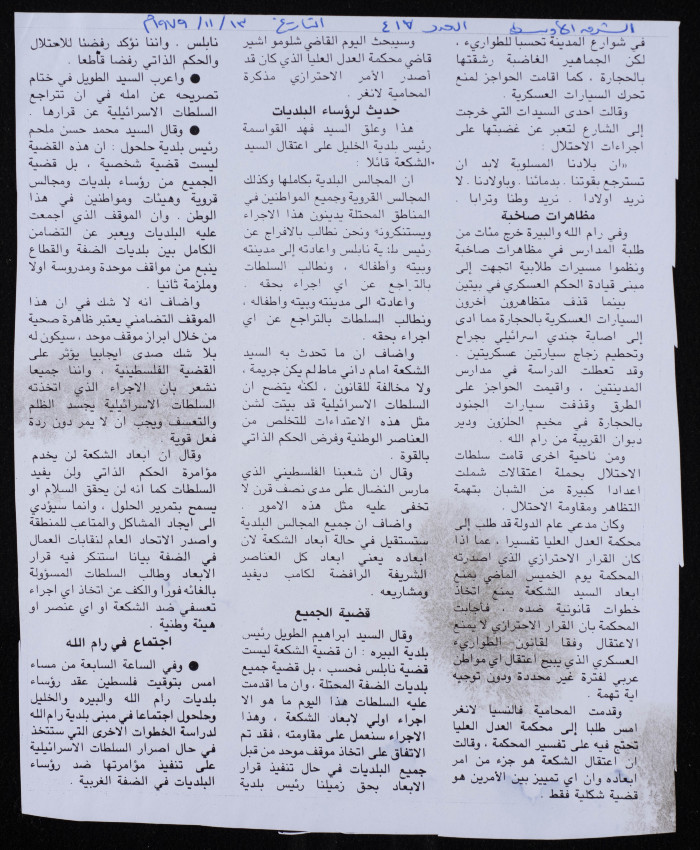 الشرق الأوسط العدد ٤١٧ التاريخ ١٣/١١/١٩٧٩م
في شوارع المدينة تحسبا للطواريء ،
لكن الجماهير الغاضبة رشقتها
بالحجارة ، كما اقامت الحواجز لمنع
تحرك السيارات العسكرية .
وقالت احدى السيدات التي خرجت
إلى الشارع لتعبر عن غضبتها على
اجراءات الاحتلال :
«ان بلادنا المسلوبة لابد ان
تسترجع بقوتنا . بدمائنا . وباولادنا . لا
نريد اولادا . نريد وطنا وترابا .
مظاهرات صاخبة
وفي رام الله والبيرة خرج مئات من
طلبة المدارس في مظاهرات صاخبة
ونظموا مسيرات طلابية اتجهت إلى
مبنى قيادة الحكم العسكري في بيتين
بينما قذف متظاهرون آخرون
السيارات العسكرية بالحجارة مما ادى
إلى اصابة جندي اسرائيلي بجراح
وتحطيم زجاج سيارتين عسكريتين .
وقد تعطلت الدراسة في مدارس
المدينتين ، واقيمت الحواجز على
الطرق وقذفت سيارات الجنود
بالحجارة في مخيم الجلزون ودير
دبوان القريبة من رام الله .
ومن ناحية اخرى قامت سلطات
الاحتلال بحملة اعتقالات شملت
اعدادا كبيرة من الشبان بتهمة
التظاهر ومقاومة الاحتلال .
وكان مدعي عام الدولة قد طلب إلى
محكمة العدل العليا تفسيرا ، عما اذا
كان القرار الاحترازي الذي اصدرته
المحكمة يوم الخميس الماضي بمنع
ابعاد السيد الشكعة يمنع اتخاذ
خطوات قانونية ضده . فأجابت
المحكمة بان القرار الاحترازي لا يمنع
الاعتقال وفقا لقانون الطواريء
العسكري الذي يبيح اعتقال اي مواطن
عربي لفترة غير محددة ودون توجيه
اية تهمة .
وقدمت المحامية فالنسيا لانغر
امس طلبا إلى محكمة العدل العليا
تحتج فيه على تفسير المحكمة ، وقالت
ان اعتقال الشكعة هو جزء من امر
ابعاده وان اي تمييز بين الأمرين هو
قضية شكلية فقط .
وسيبحث اليوم القاضي شلومو اشير
قاضي محكمة العدل العليا الذي كان قد
أصدر الأمر الاحترازي مذكرة
المحامية لانغر .
حديث لرؤساء البلديات
هذا وعلق السيد فهد القواسمة
رئيس بلدية الخليل على اعتقال السيد
الشكعة قائلا :
ان المجالس البلدية بكاملها وكذلك
المجالس القروية وجميع المواطنين في
المناطق المحتلة يدينون هذا الاجراء
ويستنكرونه ونحن نطالب بالافراج عن
رئيس بلدية نابلس واعادته إلى مدينته
وبيته وأطفاله ، ونطالب السلطات
بالتراجع عن اي اجراء بحقه .
واعادته الى مدينته وبيته واطفاله ،
ونطالب السلطات بالتراجع عن اي
اجراء بحقه .
واضاف ان ما تحدث به السيد
الشكعة امام داني ماطلم يكن جريمة ،
ولا مخالفة للقانون ، لكنه يتضح ان
السلطات الاسرائيلية قد بيتت لشن
مثل هذه الاعتداءات للتخلص من
العناصر الوطنية وفرض الحكم الذاتي
بالقوة .
وقال ان شعبنا الفلسطيني الذي
مارس النضال على مدى نصف قرن لا
تخفى عليه مثل هذه الامور .
واضاف ان جميع المجالس البلدية
ستستقيل في حالة ابعاد الشكعة لان
ابعاده يعني ابعاد كل العناصر
الشريفة الرافضة لكامب ديفيد
ومشاريعه .
قضية الجميع
وقال السيد ابراهيم الطويل رئيس
بلدية البيره : ان قضية الشكعة ليست
قضية نابلس فحسب ، بل قضية جميع
بلديات الضفة المحتلة ، وان ما اقدمت
عليه السلطات هذا اليوم ما هو الا
اجراء اولي لابعاد الشكعة ، وهذا
الاجراء سنعمل على مقاومته ، فقد تم
الاتفاق على اتخاذ موقف موحد من قبل
جميع البلديات في حال تنفيذ قرار
الابعاد بحق زميلنا رئيس بلدية
نابلس . واننا نؤكد رفضنا للاحتلال
والحكم الذاتي رفضا قاطعا .
● واعرب السيد الطويل في ختام
تصريحه عن امله في ان تتراجع
السلطات الاسرائيلية عن قرارها .
● وقال السيد محمد حسن ملحم
رئيس بلدية حلحول : ان هذه القضية
ليست قضية شخصية ، بل قضية
الجميع من رؤساء بلديات ومجالس
قروية وهيئات ومواطنين في هذا
الوطن . وان الموقف الذي اجمعت
عليه البلديات ويعبر عن التضامن
الكامل بين بلديات الضفة والقطاع
ينبع من مواقف موحدة ومدروسة اولا
وملزمة ثانيا .
واضاف انه لا شك في ان هذا
الموقف التضامني يعتبر ظاهرة صحية
من خلال ابراز موقف موحد ، سيكون له
بلا شك صدى ايجابيا يؤثر على
القضية الفلسطينية ، واننا جميعا
نشعر بان الاجراء الذي اتخذته
السلطات الاسرائيلية يجسد الظلم
والتعسف ويجب ان لا يمر دون ردة
فعل قوية
وقال ان ابعاد الشكعة لن يخدم
مؤامرة الحكم الذاتي ولن يفيد
السلطات كما انه لن يحقق السلام او
يسمح بتمرير الحلول ، وانما سيؤدي
الى ايجاد المشاكل والمتاعب للمنطقة
واصدر الاتحاد العام لنقابات العمال
في الضفة بيانا استنكر فيه قرار
الابعاد وطالب السلطات المسؤولة
بالغائه فورا والكف عن اتخاذ اي اجراء
تعسفي ضد الشكعة او اي عنصر او
هيئة وطنية .
اجتماع في رام الله
● وفي الساعة السابعة من مساء
امس بتوقيت فلسطين عقد رؤساء
بلديات رام الله والبيره والخليل
وحلحول اجتماعا في مبنى بلدية رام الله
لدراسة الخطوات الاخرى التي ستتخذ
في حال اصرار السلطات الاسرائيلية
على تنفيذ مؤامرتها ضد رؤساء
البلديات في الضفة الغربية .